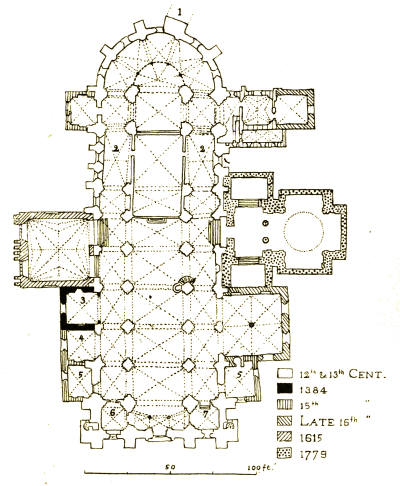 1
2
2
3
4
5
5
6
7
12th & 13th CENT.
1384
15th "
LATE 16th "
1615
1779
50
100 ft.